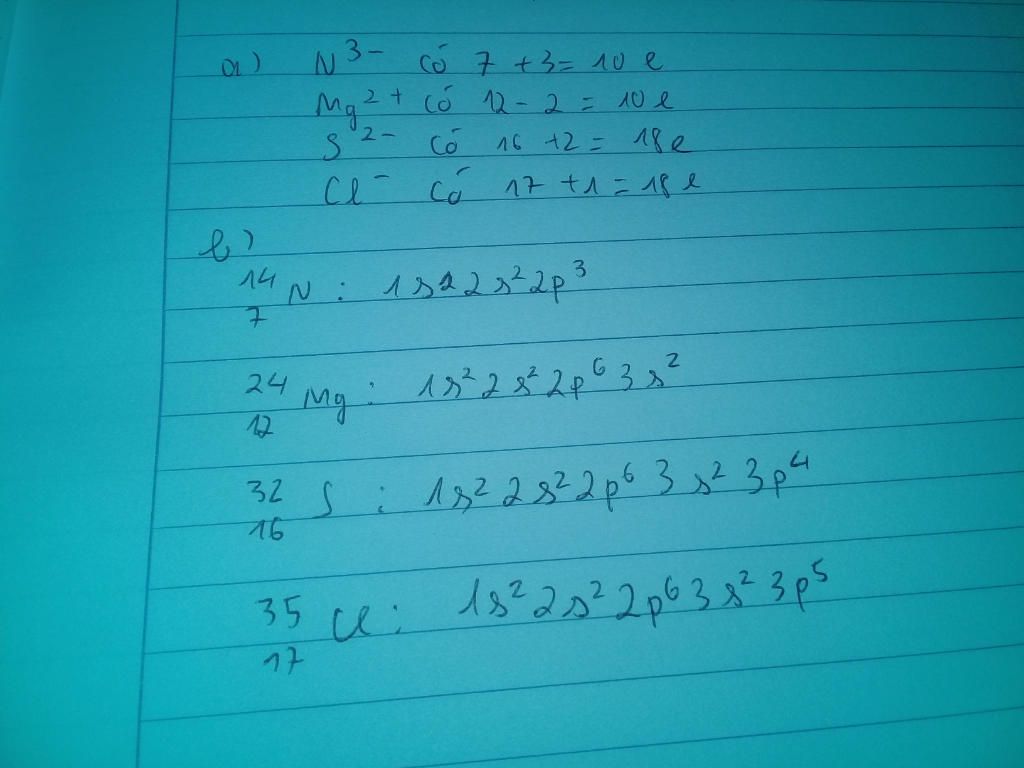 a) N³⁻ có 7 + 3 = 10 e
Mg²⁺ có 12 - 2 = 10 e
S²⁻ có 16 + 2 = 18 e
Cl⁻ có 17 + 1 = 18 e
b)
¹⁴₇N : 1s² 2s² 2p³
²⁴₁₂Mg : 1s² 2s² 2p⁶ 3s²
³²₁₆S : 1s² 2s² 2p⁶ 3s² 3p⁴
³⁵₁₇Cl : 1s² 2s² 2p⁶ 3s² 3p⁵